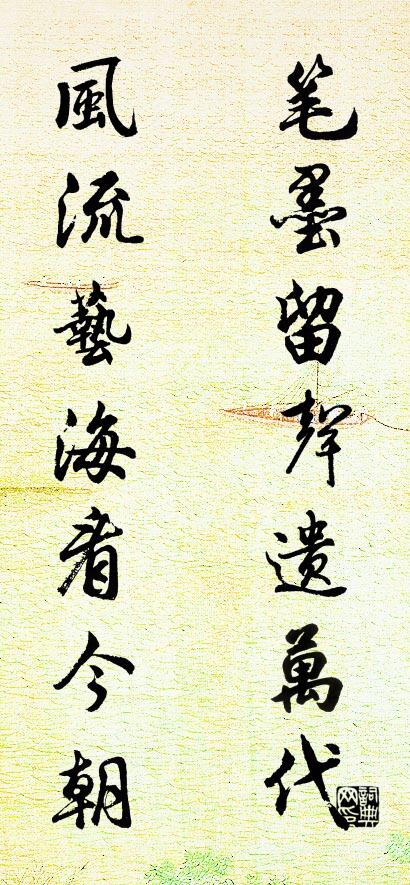 笔墨留聲遺萬代
風流藝海看今朝
詞典网印